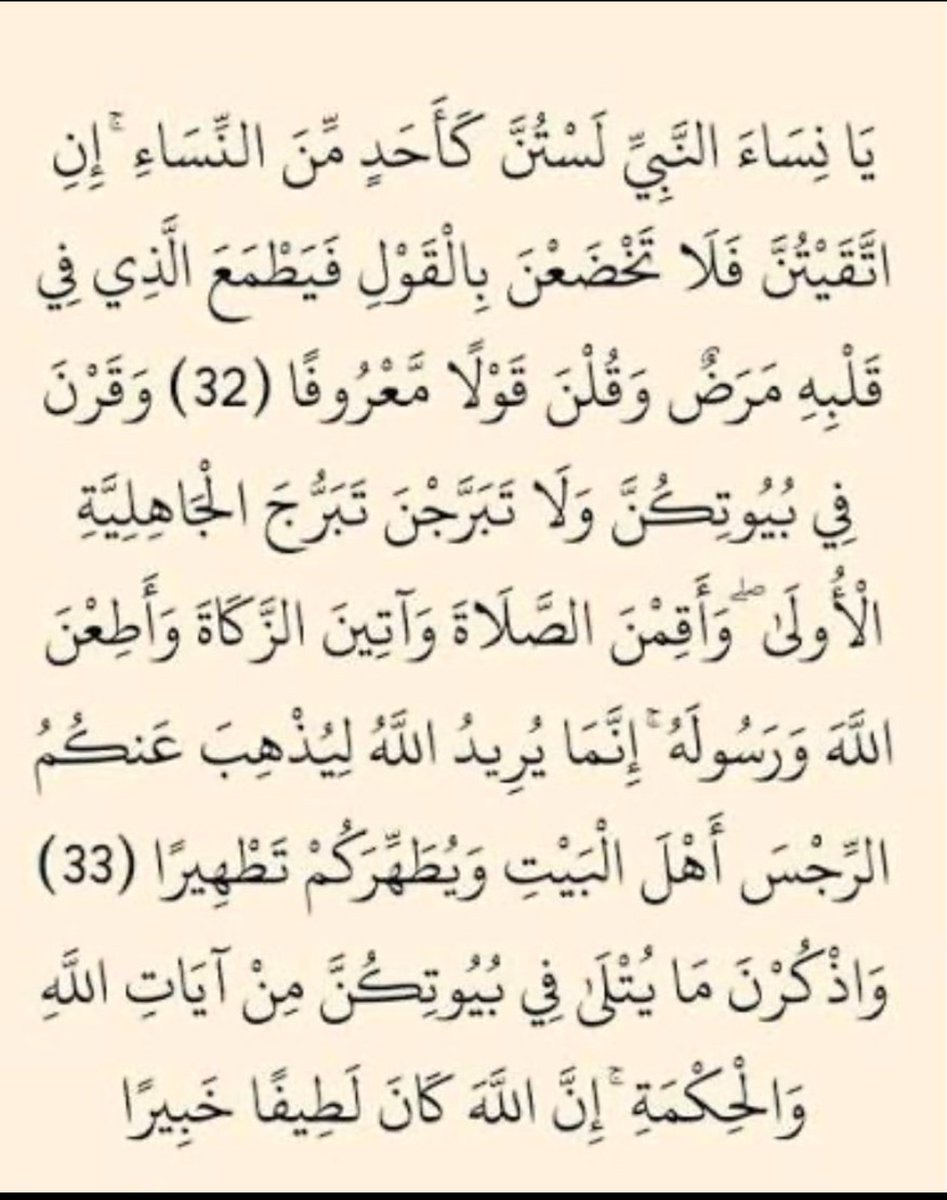 يَا نِسَاءَ النَّبِيِّ لَسْتُنَّ كَأَحَدٍ مِّنَ النِّسَاءِ ۚ إِنِ
اتَّقَيْتُنَّ فَلَا تَخْضَعْنَ بِالْقَوْلِ فَيَطْمَعَ الَّذِي فِي
قَلْبِهِ مَرَضٌ وَقُلْنَ قَوْلًا مَّعْرُوفًا (32) وَقَرْنَ
فِي بُيُوتِكُنَّ وَلَا تَبَرَّجْنَ تَبَرُّجَ الْجَاهِلِيَّةِ
الْأُولَىٰ ۖ وَأَقِمْنَ الصَّلَاةَ وَآتِينَ الزَّكَاةَ وَأَطِعْنَ
اللَّهَ وَرَسُولَهُ ۚ إِنَّمَا يُرِيدُ اللَّهُ لِيُذْهِبَ عَنكُمُ
الرِّجْسَ أَهْلَ الْبَيْتِ وَيُطَهِّرَكُمْ تَطْهِيرًا (33)
وَاذْكُرْنَ مَا يُتْلَىٰ فِي بُيُوتِكُنَّ مِنْ آيَاتِ اللَّهِ
وَالْحِكْمَةِ ۚ إِنَّ اللَّهَ كَانَ لَطِيفًا خَبِيرًا